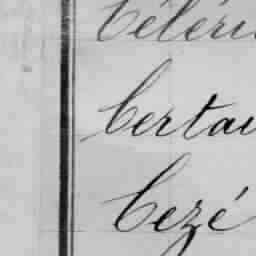 Céléri
Certai
Cezé